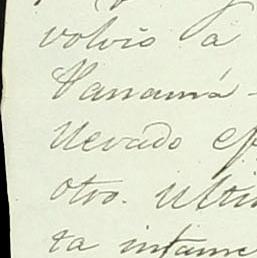 volvió á
Panamá -
llevado ef
otro. ulti
ta infame